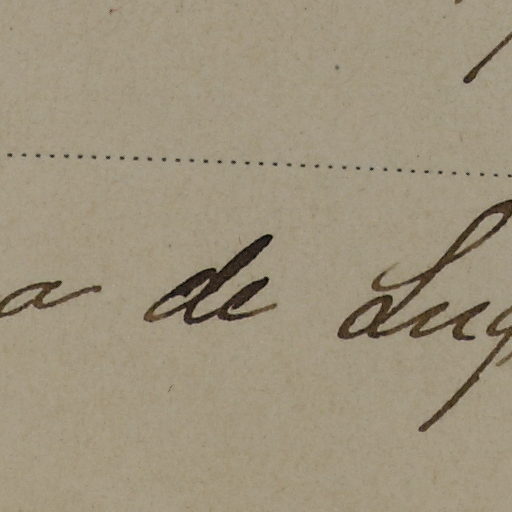 a de Lug